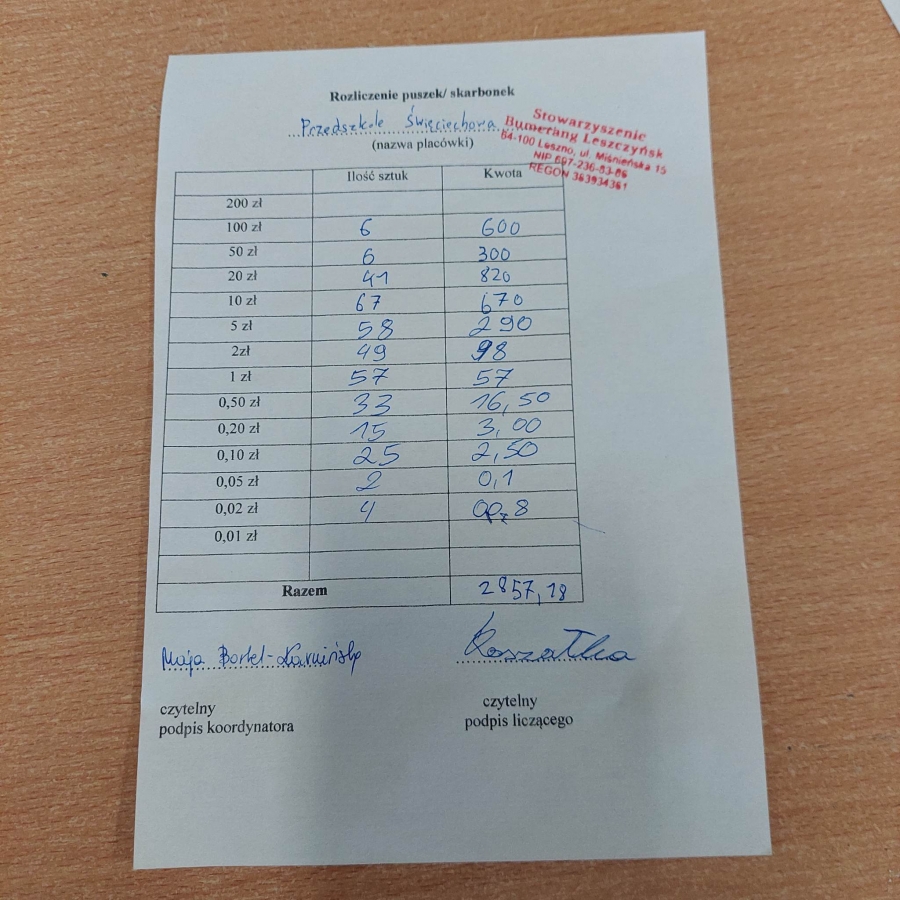 Rozliczenie puszek/ skarbonek
Przedszkole Święciechowa
(nazwa placówki)
Stowarzyszenie
Bumerang Leszczyńsk
64-100 Leszno, ul. Miśnieńska 15
NIP 697-236-83-86
REGON 363934361
Ilość sztuk Kwota
200 zł
100 zł 6 600
50 zł 6 300
20 zł 41 820
10 zł 67 670
5 zł 58 290
2zł 49 98
1 zł 57 57
0,50 zł 33 16,50
0,20 zł 15 3,00
0,10 zł 25 2,50
0,05 zł 2 0,1
0,02 zł 4
0,01 zł
Razem 2857,18
Maja Bartel-
czytelny
podpis koordynatora
czytelny
podpis liczącego